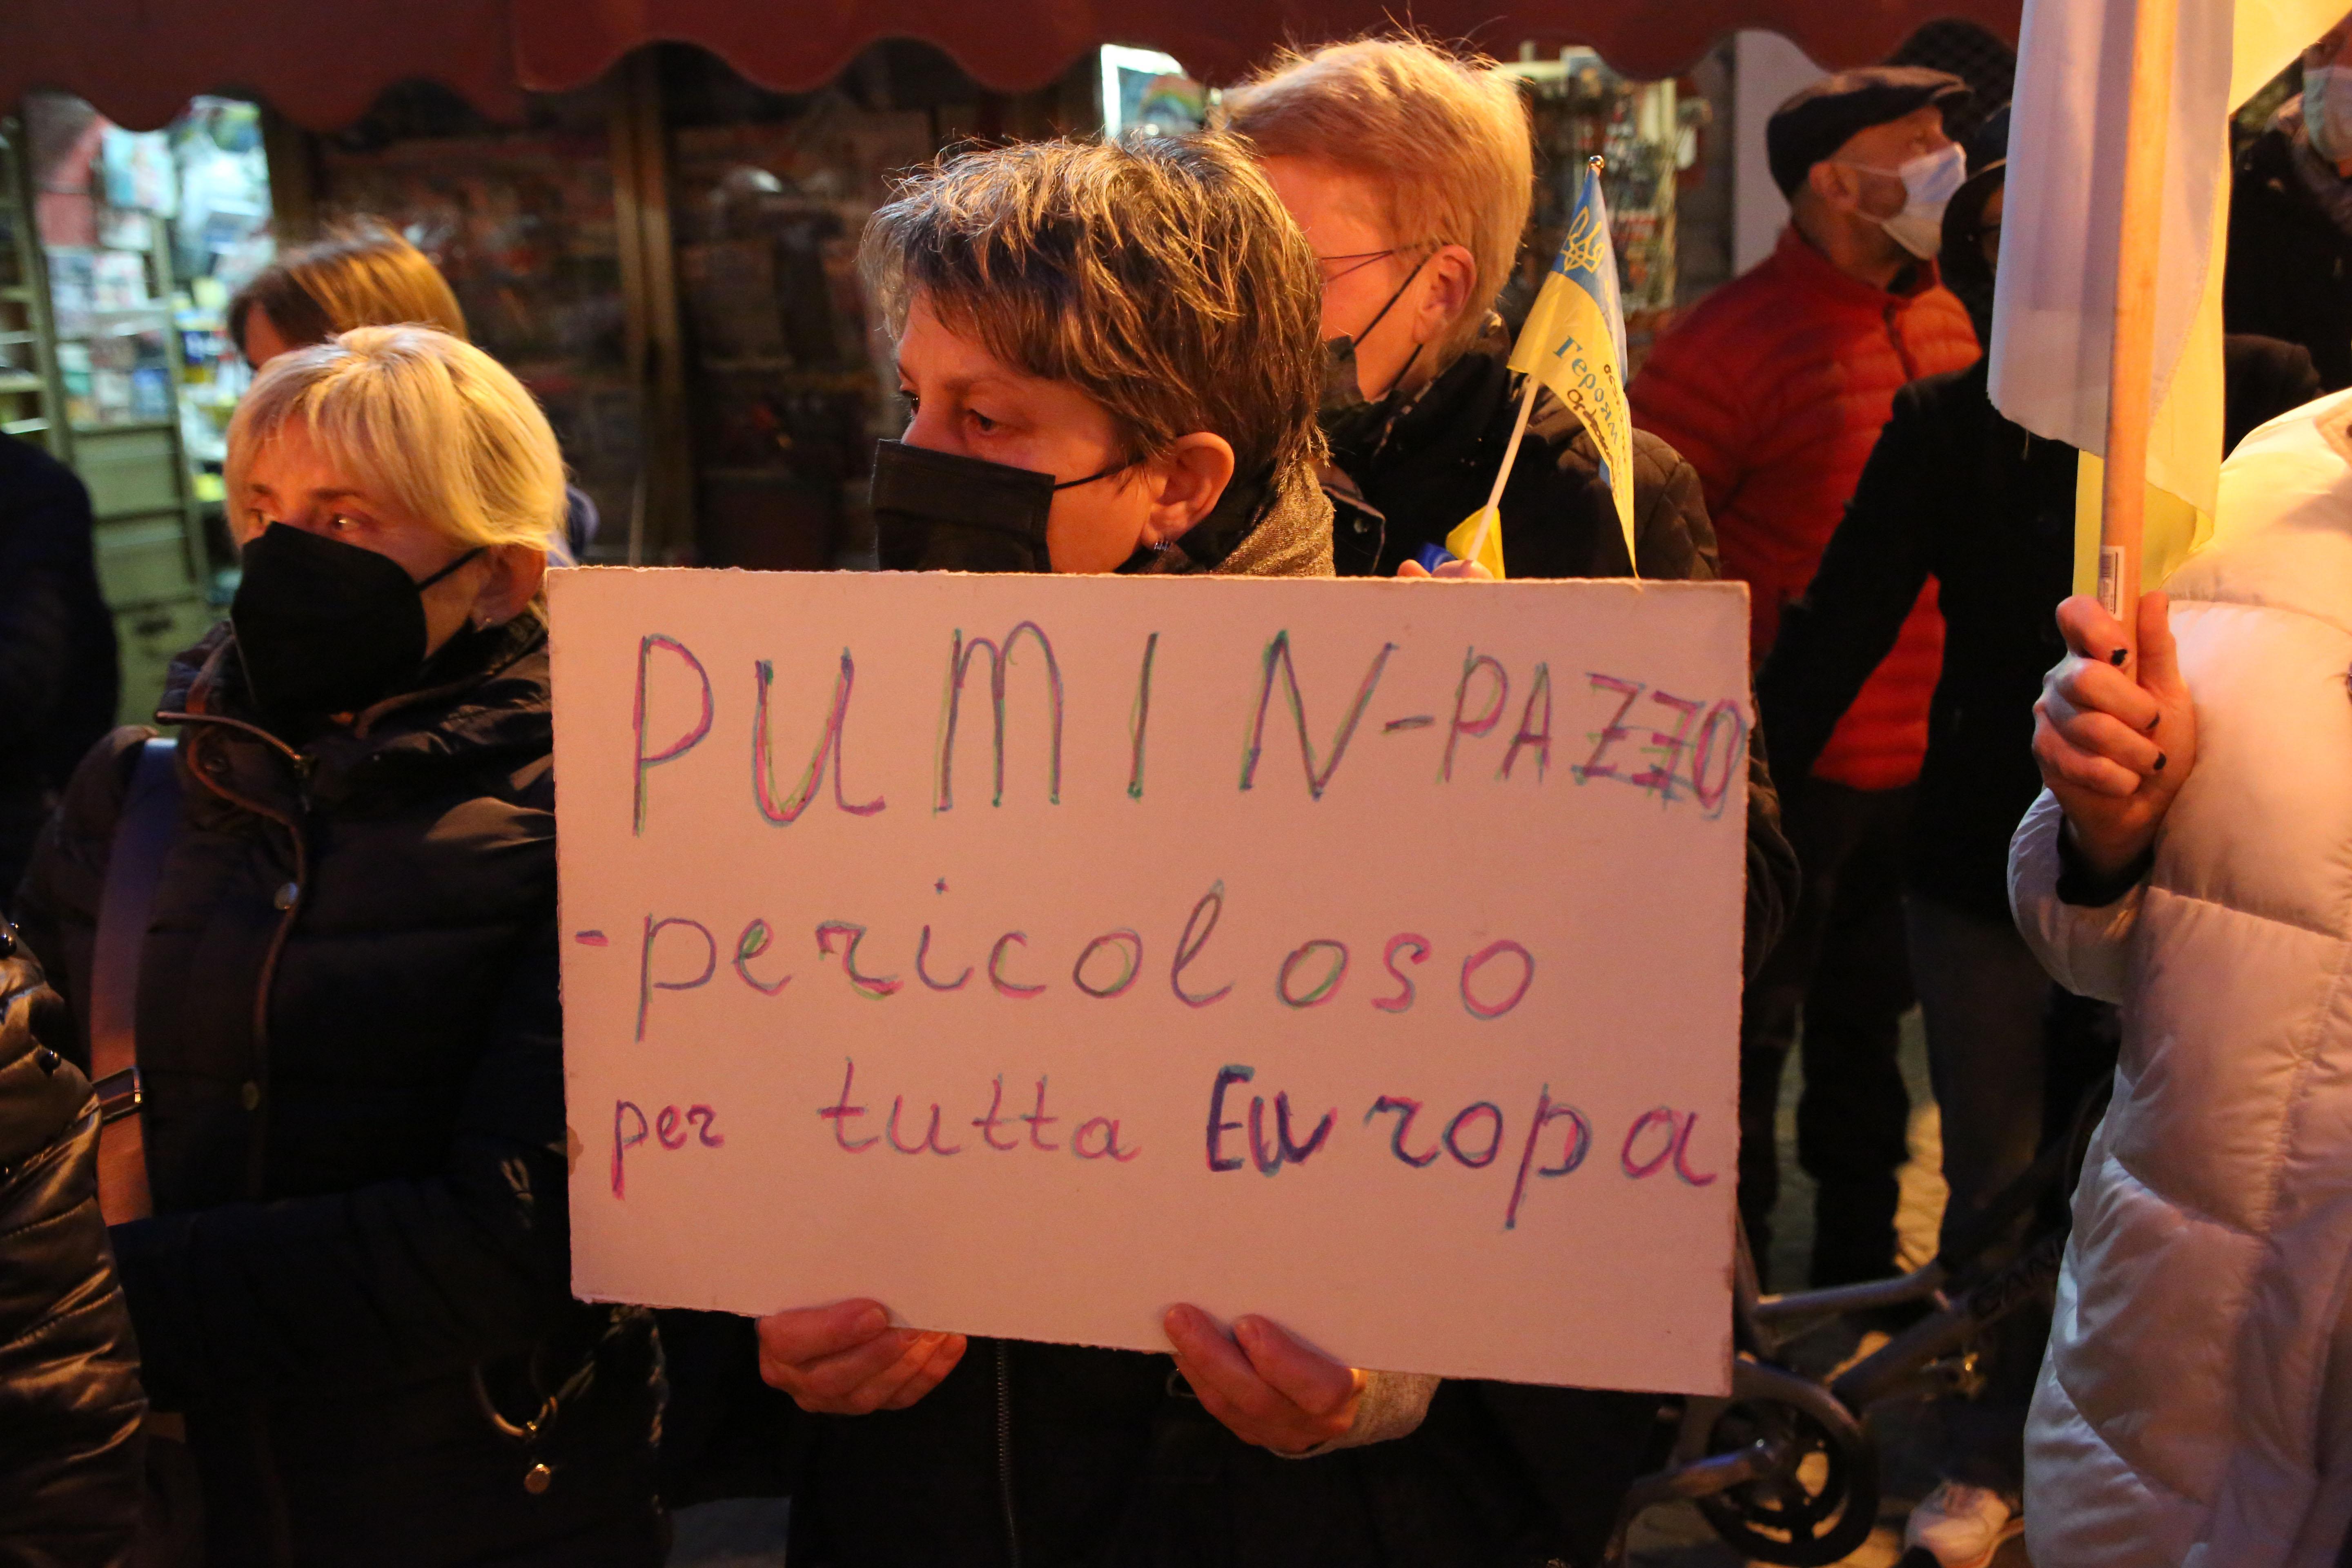 PUmIN-PAZZO
-pericoloso
per tutta Europa
Героям